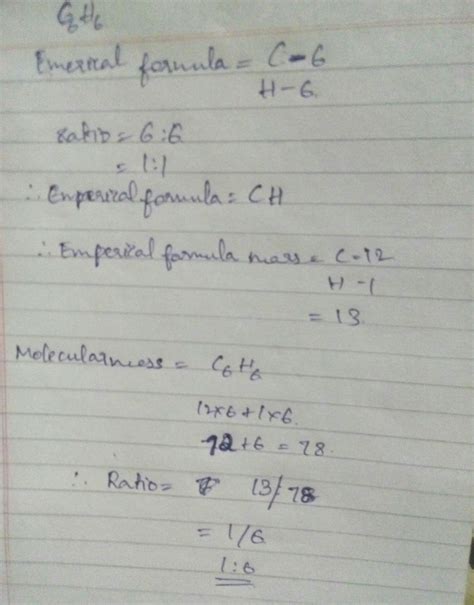 C6H6
Emerical formula = C-6
H-6
ratio = 6:6
= 1:1
∴ Enperical formula = CH
∴ Emperical formula mass = C-12
H-1
= 13.
Molecularmass = C6H6
12x6+1x6.
72+6 = 78.
∴ Ratio = 13/78
= 1/6
1:6